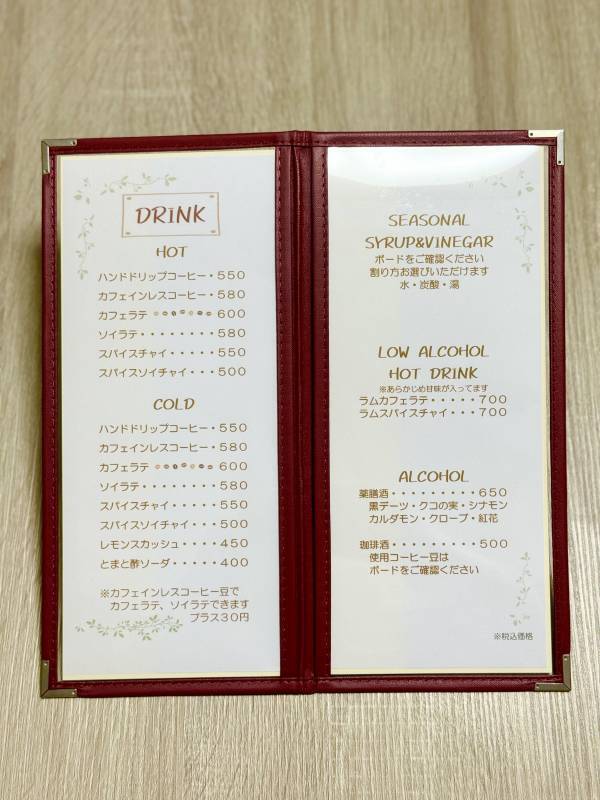 DRINK
HOT
ハンドドリップコーヒー・550
カフェインレスコーヒー・580
カフェラテ 600
ソイラテ・・・・・・・・580
スパイスチャイ・・・・・550
スパイスソイチャイ・・・500
COLD
ハンドドリップコーヒー・550
カフェインレスコーヒー・580
カフェラテ 600
ソイラテ・・・・・・・・580
スパイスチャイ・・・・・550
スパイスソイチャイ・・・500
レモンスカッシュ・・・・450
とまと酢ソーダ・・・・・400
※カフェインレスコーヒー豆で
カフェラテ、ソイラテできます
プラス30円
SEASONAL
SYRUP&VINEGAR
ボードをご確認ください
割り方お選びいただけます
水・炭酸・湯
LOW ALCOHOL
HOT DRINK
※あらかじめ甘味が入ってます
ラムカフェラテ・・・・・700
ラムスパイスチャイ・・・700
ALCOHOL
薬膳酒・・・・・・・・・650
黒デーツ・クコの実・シナモン
カルダモン・クローブ・紅花
珈琲酒・・・・・・・・・500
使用コーヒー豆は
ボードをご確認ください
※税込価格